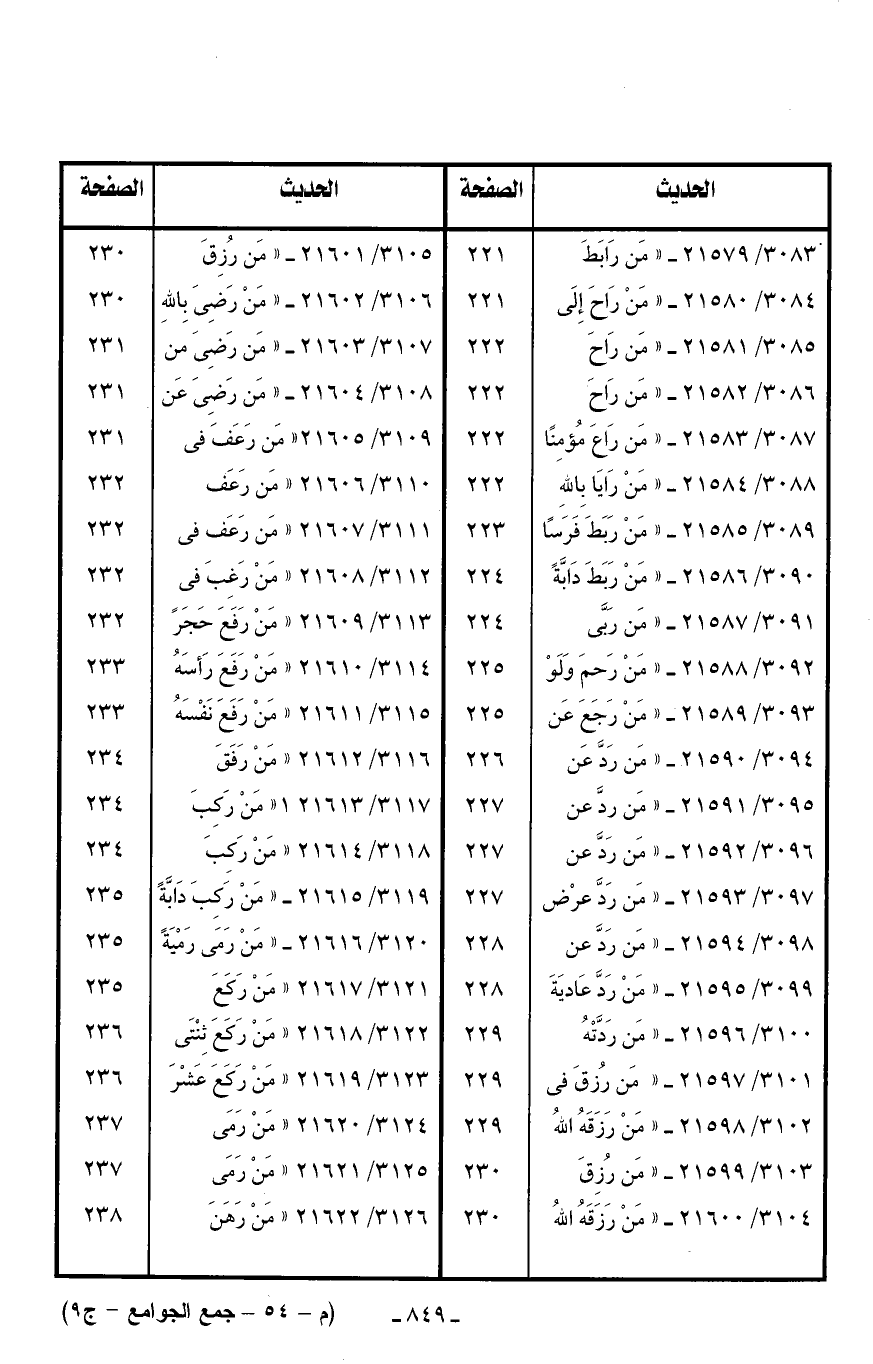 الحديث الصفحة الحديث الصفحة
٢١٥٧٩/٣٠٨٣ ـ « مَن رَابَطَ ٢٢١ ٢١٦٠١/٣١٠٥ ـ « مَن رُزِقَ ٢٣٠
٢١٥٨٠/٣٠٨٤ ـ « مَنْ رَاحَ إِلَى ٢٢١ ٢١٦٠٢/٣١٠٦ ـ « مَنْ رَضِىَ بِاللهِ ٢٣٠
٢١٥٨١/٣٠٨٥ ـ « مَن رَاحَ ٢٢٢ ٢١٦٠٣/٣١٠٧ ـ « مَن رَضِىَ من ٢٣١
٢١٥٨٢/٣٠٨٦ ـ « مَن رَاحَ ٢٢٢ ٢١٦٠٤/٣١٠٨ ـ « مَن رَضِىَ عَن ٢٣١
٢١٥٨٣/٣٠٨٧ ـ « مَن رَاعَ مُؤمِنًا ٢٢٢ ٢١٦٠٥/٣١٠٩« مَن رَعَفَ فى ٢٣١
٢١٥٨٤/٣٠٨٨ ـ « مَنْ رَايَا بِاللهِ ٢٢٢ ٢١٦٠٦/٣١١٠ « مَن رَعَفَ ٢٣٢
٢١٥٨٥/٣٠٨٩ ـ « مَنْ رَبَطَ فَرَسًا ٢٢٣ ٢١٦٠٧/٣١١١ « مَن رَعَف فى ٢٣٢
٢١٥٨٦/٣٠٩٠ ـ « مَنْ رَبَطَ دَابَّةً ٢٢٤ ٢١٦٠٨/٣١١٢ « مَنْ رَغِبَ فى ٢٣٢
٢١٥٨٧/٣٠٩١ ـ « مَن رَبَّى ٢٢٤ ٢١٦٠٩/٣١١٣ « مَنْ رَفَعَ حَجَرً ٢٣٢
٢١٥٨٨/٣٠٩٢ ـ « مَنْ رَحمَ وَلَوْ ٢٢٥ ٢١٦١٠/٣١١٤ « مَنْ رَفَعَ رَأسَهُ ٢٣٣
٢١٥٨٩/٣٠٩٣ ـ « مَنْ رَجَعَ عَن ٢٢٥ ٢١٦١١/٣١١٥ « مَنْ رَفَعَ نَفْسَهُ ٢٣٣
٢١٥٩٠/٣٠٩٤ ـ « مَن رَدَّ عَن ٢٢٦ ٢١٦١٢/٣١١٦ « مَنْ رَفَقَ ٢٣٤
٢١٥٩١/٣٠٩٥ ـ « مَن ردَّ عن ٢٢٧ ٢١٦١٣/٣١١٧ ١« مَنْ رَكِبَ ٢٣٤
٢١٥٩٢/٣٠٩٦ ـ « مَن رَدَّ عن ٢٢٧ ٢١٦١٤/٣١١٨ « مَنْ رَكِبَ ٢٣٤
٢١٥٩٣/٣٠٩٧ ـ « مَن رَدَّ عرْض ٢٢٧ ٢١٦١٥/٣١١٩ ـ « مَنْ رَكِبَ دَابَّةً ٢٣٥
٢١٥٩٤/٣٠٩٨ ـ « مَن رَدَّ عن ٢٢٨ ٢١٦١٦/٣١٢٠ ـ « مَنْ رَمَى رَمْيَةً ٢٣٥
٢١٥٩٥/٣٠٩٩ ـ « مَنْ رَدَّ عَاديَةَ ٢٢٨ ٢١٦١٧/٣١٢١ « مَنْ رَكَعَ ٢٣٥
٢١٥٩٦/٣١٠٠ ـ « مَن رَدَّتْهُ ٢٢٩ ٢١٦١٨/٣١٢٢ « مَنْ رَكَعَ ثِنْتَى ٢٣٦
٢١٥٩٧/٣١٠١ ـ « مَن رُزِقَ فى ٢٢٩ ٢١٦١٩/٣١٢٣ « مَنْ رَكَعَ عَشْرَ ٢٣٦
٢١٥٩٨/٣١٠٢ ـ « مَنْ رَزَقَهُ اللهُ ٢٢٩ ٢١٦٢٠/٣١٢٤ « مَنْ رَمَى ٢٣٧
٢١٥٩٩/٣١٠٣ ـ « مَن رُزِقَ ٢٣٠ ٢١٦٢١/٣١٢٥ « مَنْ رَمَى ٢٣٧
٢١٦٠٠/٣١٠٤ ـ « مَنْ رَزَقَهُ اللهُ ٢٣٠ ٢١٦٢٢/٣١٢٦ « مَنْ رَهَنَ ٢٣٨
ـ ٨٤٩ ـ (م - ٥٤ - جمع الجوامع - ج٩)